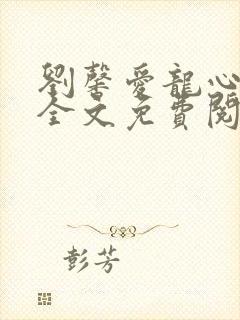 劉馨愛龍心
全文免費閱
彭芳